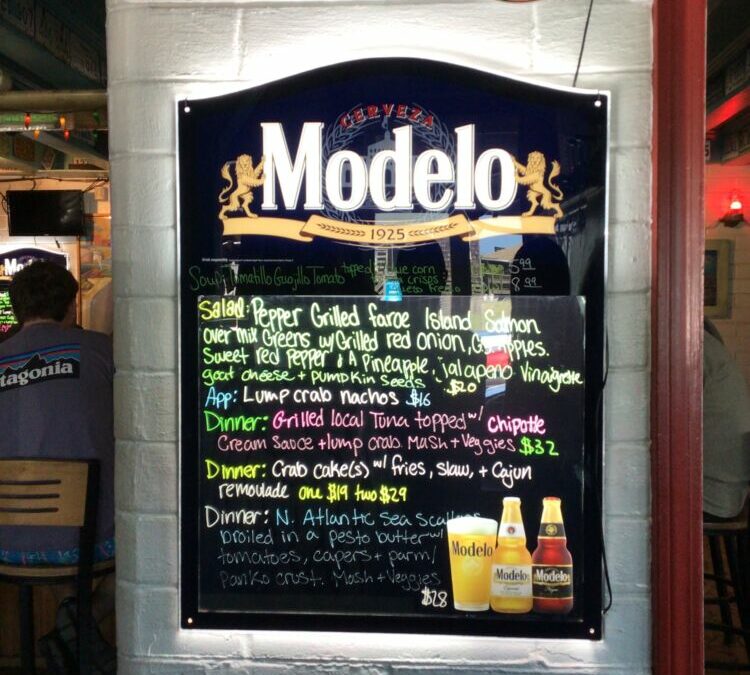 CERVEZA
Modelo
1925
Mo
tagonia
Soup: Tomatillo Guajillo Tomato topped blue corn 5.99
crisps 8.99
Salad: Pepper Grilled faroe Island Salmon
over mix Greens w/Grilled red onion, G.S. apples.
Sweet red pepper & A Pineapple, jalapeno Vinaigrette
goat cheese + pumpkin seeds. $20
App: Lump crab nachos $16
Dinner: Grilled local Tuna topped w/ Chipotle
Cream Sauce + lump crab. Mash + Veggies $32
Dinner: Crab cake(s) w/ fries, slaw, + Cajun
remoulade one $19 two $29
Dinner: N. Atlantic sea Scallops
broiled in a pesto butter w/
tomatoes, capers + parm/
panko crust. Mash + Veggies
$28
Modelo
Modelo
Modelo